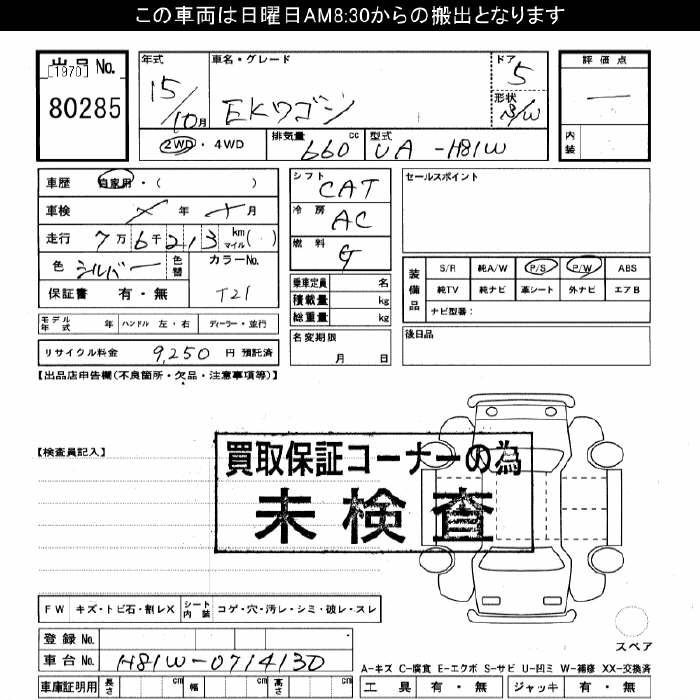 この車両は日曜日AM8:30からの搬出となります
出品 No.
[1970]
80285
年式
15/10月
車名・グレード
EKワゴン
ドア
5
形状
S/W
評価点
―
内装
2WD・4WD
排気量 660 cc
型式 UA-H81W
車歴 自家用・( )
車検 年 月
走行 7万6千213 km マイル( )
色 シルバー 色替
カラーNo.
T21
保証書 有・無
モデル年式 年 ハンドル 左・右 ディーラー・並行
リサイクル料金 9,250 円 預託済
シフト CAT
冷房 AC
燃料 G
乗車定員 名
積載量 kg
総重量 kg
名変期限
月 日
セールスポイント
装備品
S/R 純A/W P/S P/W ABS
純TV 純ナビ 革シート 外ナビ エアB
ナビ型番:
後日品
【出品店申告欄(不良箇所・欠品・注意事項等)】
【検査員記入】
買取保証コーナーの為
未検査
FW キズ・トビ石・割レX シート内装 コゲ・穴・汚レ・シミ・破レ・スレ
登録 No.
車台 No. H81W-0714130
車庫証明用 長さ cm 幅 cm 高さ cm
スペア
A-キズ C-腐食 E-エクボ S-サビ U-凹ミ W-補修 XX-交換済
工具 有・無 ジャッキ 有・無